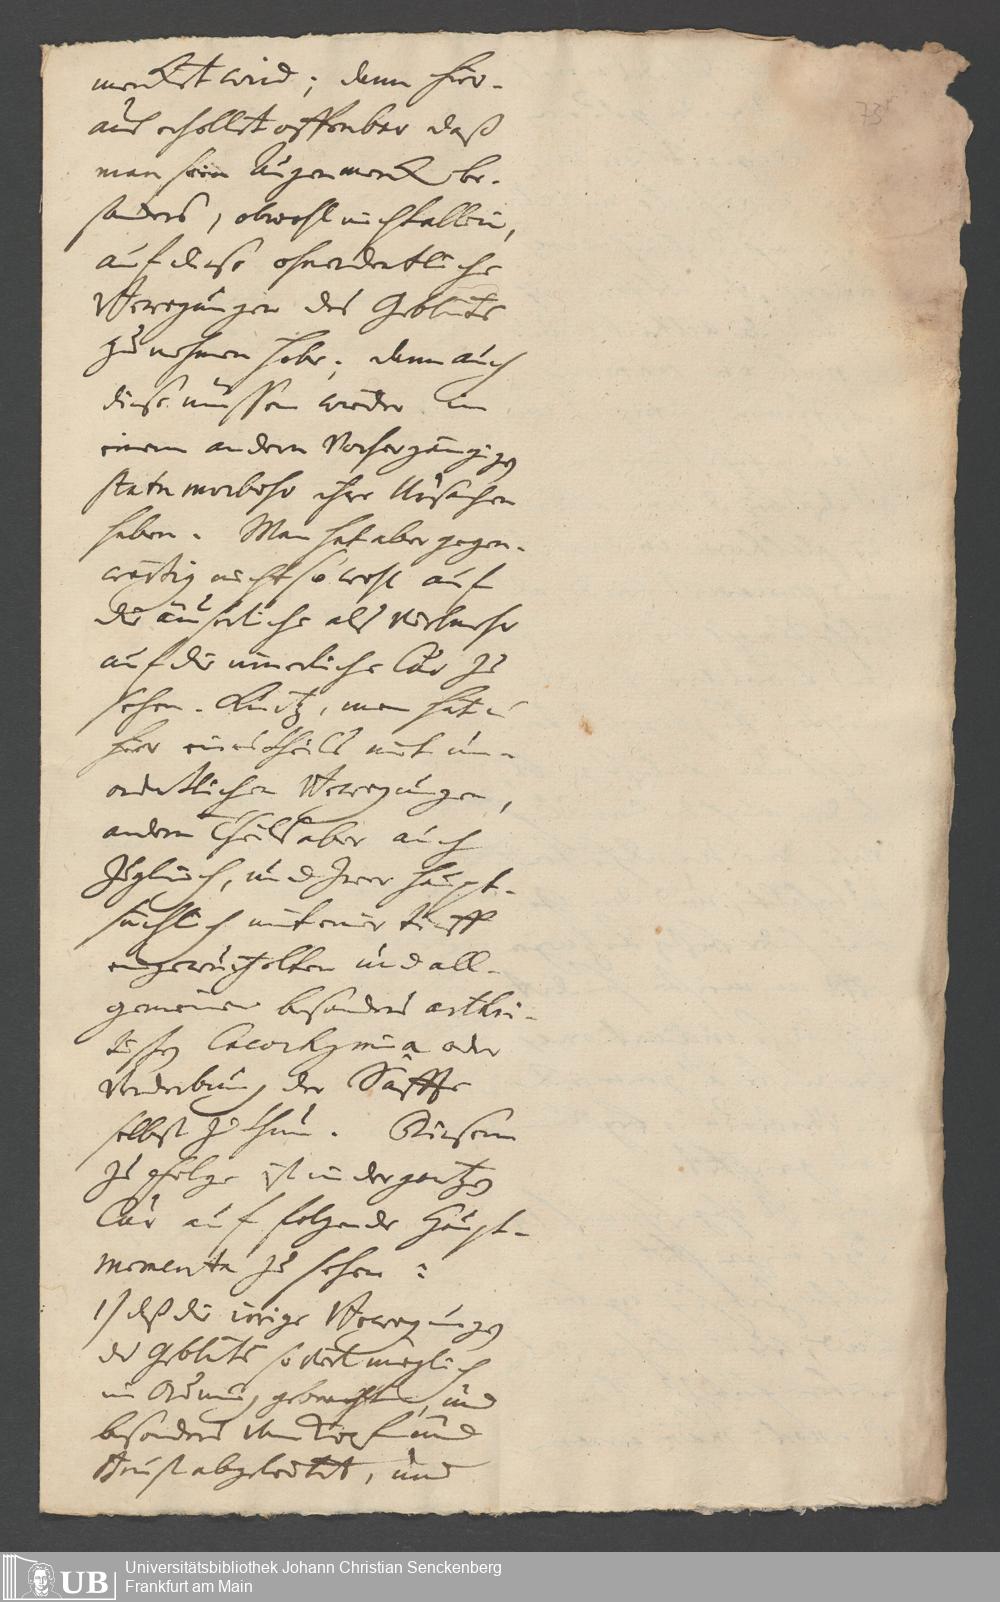 mercket wird; denn hier-
aus erhellet offenbar daß
man sein Augenmerck be-
sonders, obwohl nicht allein,
auf diese ohnordentliche
Bewegungen des Geblüts
zu nehmen habe; denn auch
diese müssen wieder in
einem andern vorhergängigen
statu morboso ihre Ursachen
haben. Man hat aber gegen-
wärtig nicht so wohl auf
die äuserliche als vielmehr
auf die innerliche Cur zu
sehen. Kurtz, man hat es
hier eines theils mit un-
ordentlichen Bewegungen,
andern Theils aber auch
zugleich, und zwar haupt-
sächlich mit einer tieff
eingewurtzelten und all-
gemeinen besonders arthri-
tischen Cacochymia oder
Verderbung der Säffte
selbst zu thun. Diesem
zu folge ist in der gantzen
Cur auf folgende Haupt-
momenta zu sehen:
1) daß die irrige Bewegungen
des Geblüts so viel möglich
in Ordnung gebracht, und
besonders vom Kopf und
Brust abgeleitet, und
73
UB
Universitätsbibliothek Johann Christian Senckenberg
Frankfurt am Main